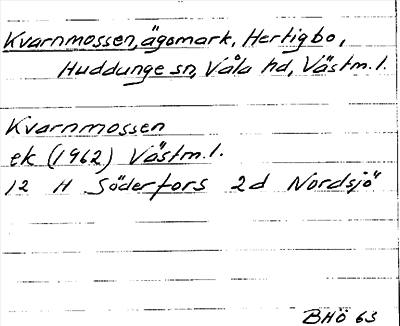 Kvarnmossen, ägomark, Hertigbo,
Huddunge sn, Våla hd, Västm.l.
Kvarnmossen
ek (1962) Västm.l.
12 H Söderfors 2d Nordsjö
BHö 63